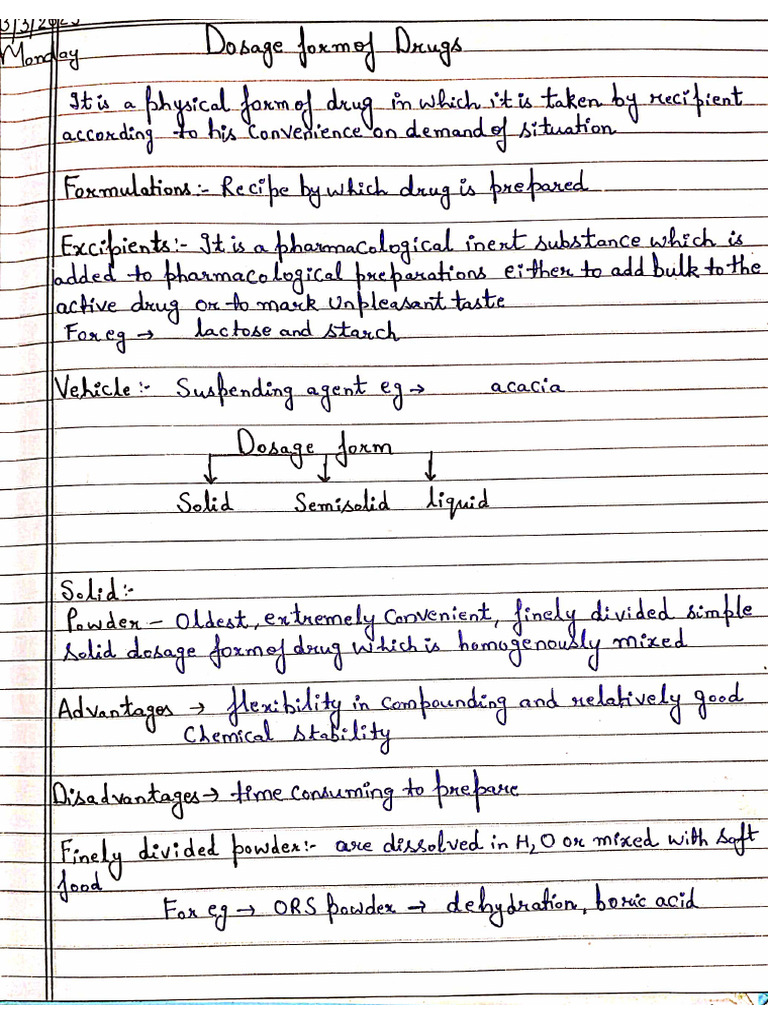 Monday
Dosage form of Drugs
It is a physical form of drug in which it is taken by recipient
according to his convenience on demand of situation
Formulations:- Recipe by which drug is prepared
Excipients:- It is a pharmacological inert substance which is
added to pharmacological preparations either to add bulk to the
active drug or to mark unpleasant taste
For eg → lactose and starch
Vehicle:- Suspending agent eg → acacia
Dosage form
Solid Semisolid liquid
Solid:-
Powder - Oldest, extremely convenient, finely divided simple
solid dosage form of drug which is homogenously mixed
Advantages → flexibility in compounding and relatively good
Chemical stability
Disadvantages → time consuming to prepare
Finely divided powder:- are dissolved in H2O or mixed with soft
food
For eg → ORS powder → dehydration, boric acid